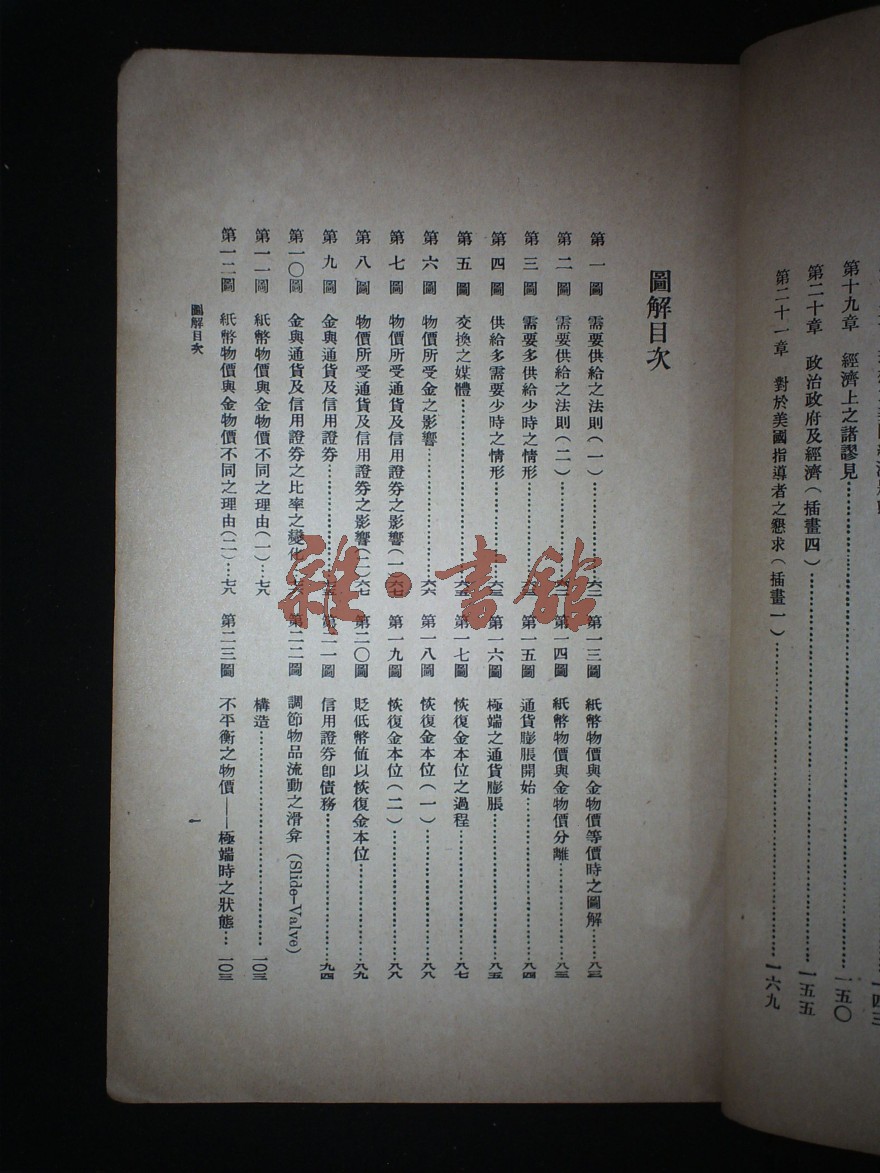 第十九章 經濟上之諸謬見……一五〇
第二十章 政治政府及經濟(插畫四)……一五五
第二十一章 對於美國指導者之懇求(插畫一)……一六九
圖解目次
第一圖 需要供給之法則(一)……六二
第二圖 需要供給之法則(二)……
第三圖 需要多供給少時之情形……
第四圖 供給多需要少時之情形……六三
第五圖 交換之媒體……六五
第六圖 物價所受金之影響……六六
第七圖 物價所受通貨及信用證券之影響(一)六七
第八圖 物價所受通貨及信用證券之影響(二)六七
第九圖 金與通貨及信用證券……
第一〇圖 金與通貨及信用證券之比率之變化
第一一圖 紙幣物價與金物價不同之理由(一)…七八
第一二圖 紙幣物價與金物價不同之理由(二)…七八
第一三圖 紙幣物價與金物價等價時之圖解……八三
第一四圖 紙幣物價與金物價分離……八三
第一五圖 通貨膨脹開始……八四
第一六圖 極端之通貨膨脹……八五
第一七圖 恢復金本位之過程……八七
第一八圖 恢復金本位(一)……八八
第一九圖 恢復金本位(二)……八八
第二〇圖 貶低幣値以恢復金本位……八九
第二一圖 信用證券卽債務……九四
第二二圖 調節物品流動之滑弇(Slide-Valve)
構造……一〇三
第二三圖 不平衡之物價——極端時之狀態…一〇三
圖解目次
一
雜·書館